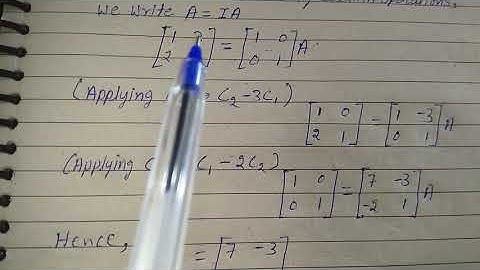 We write A = IA
[1 2 ] = [1 0 0 1] A
(Applying C₂ - 3C₁) [1 0 2 1] = [1 -3 0 1] A
(Applying C₁ - 2C₂) [1 0 0 1] = [7 -3 -2 1] A
Hence, = [7 -3